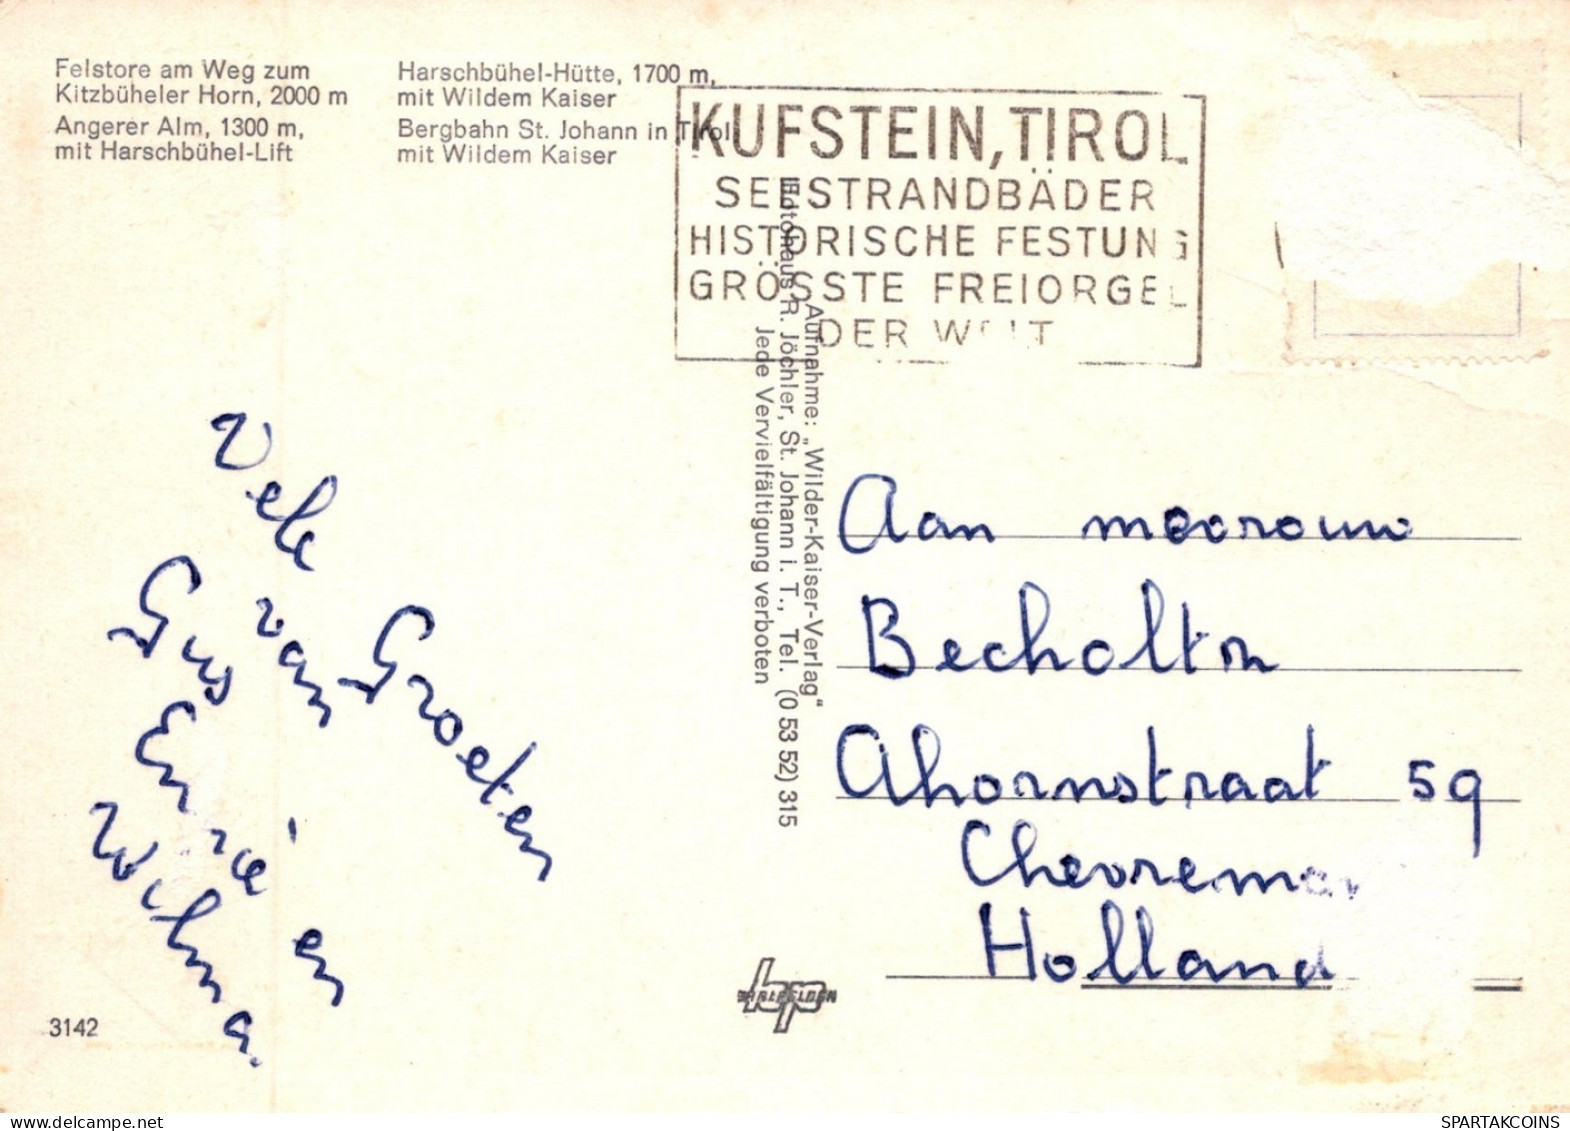 Felstore am Weg zum
Kitzbüheler Horn, 2000 m
Angerer Alm, 1300 m,
mit Harschbühel-Lift
Harschbühel-Hütte, 1700 m,
mit Wildem Kaiser
Bergbahn St. Johann in Tirol
mit Wildem Kaiser
KUFSTEIN, TIROL
SEESTRANDBÄDER
HISTORISCHE FESTUNG
GRÖSSTE FREIORGEL
DER WELT
Aufnahme: „Wilder-Kaiser-Verlag“
Fotohaus R. Jöchler, St. Johann i. T., Tel. (0 53 52) 315
Jede Vervielfältigung verboten
Vele Groeten
van
Gus
Enné en
Wilma.
Aan mevrouw
Becholtz
Ahornstraat 59
Chevremon
Holland
bp
3142
SPARTAKCOINS